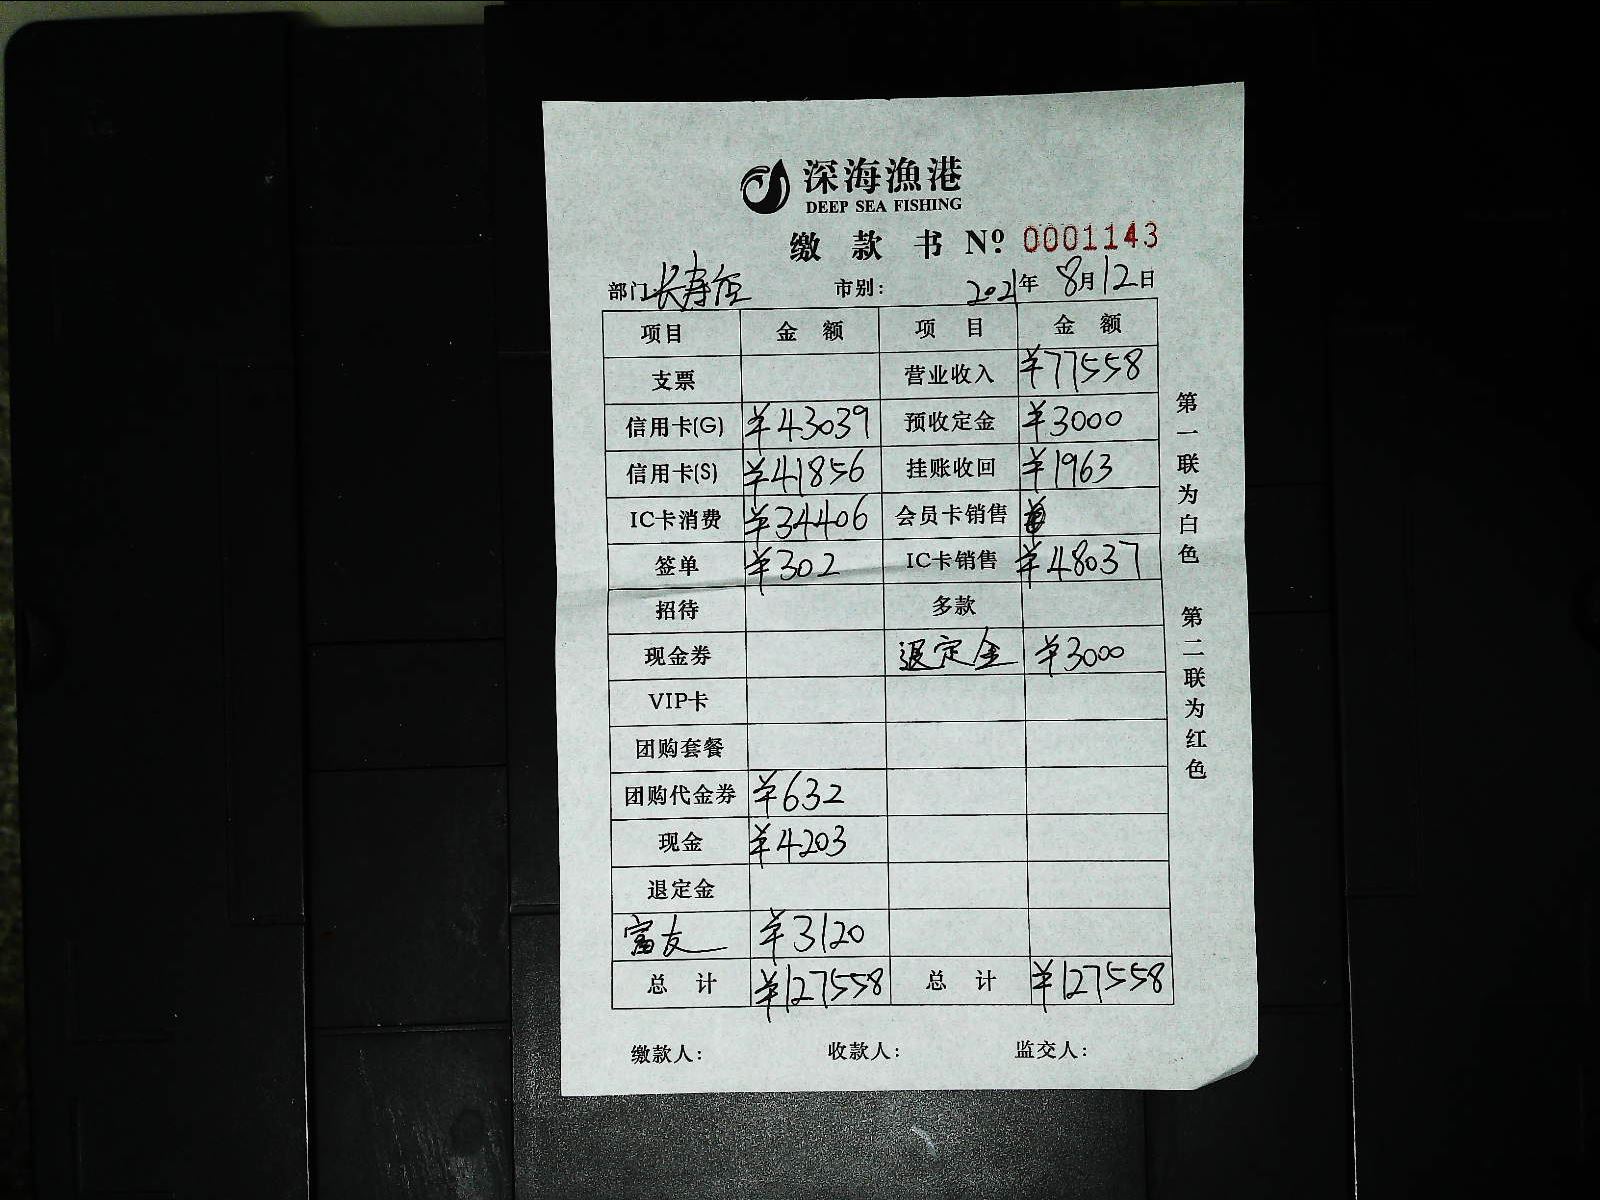 深海漁港
DEEP SEA FISHING
缴款书 Nº 0001143
部门:长寿店 市别: 2021年8月12日
项目 金额 项目 金额
支票 营业收入 ¥77558
信用卡(G) ¥43039 预收定金 ¥3000
信用卡(S) ¥41856 挂账收回 ¥1963
IC卡消费 ¥34406 会员卡销售
签单 ¥302 IC卡销售 ¥48037
招待 多款
现金券 退定金 ¥3000
VIP卡
团购套餐
团购代金券 ¥632
现金 ¥4203
退定金
富友 ¥3120
总计 ¥127558 总计 ¥127558
缴款人: 收款人: 监交人:
第一联为白色
第二联为红色